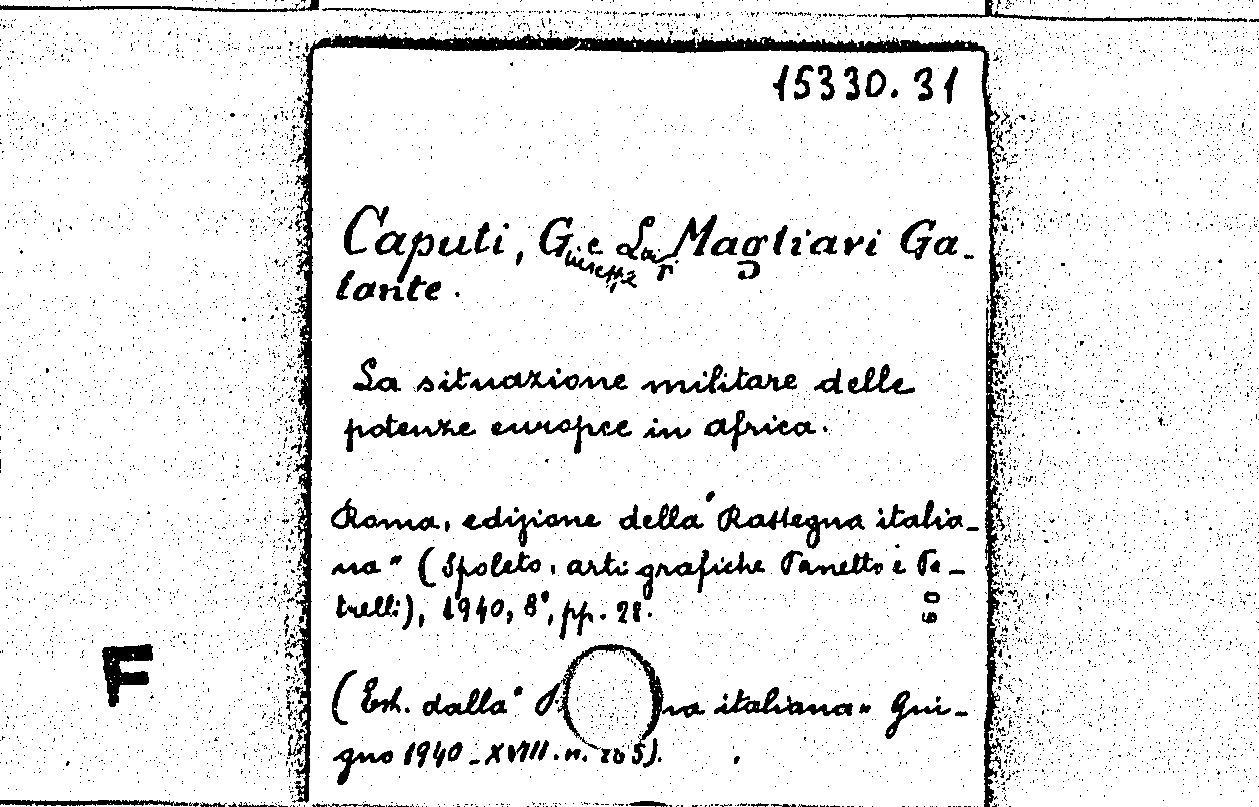 15330.31
Caputi, Giuseppe e Magliari Ga-
lante.
La situazione militare delle
potenze europee in Africa.
Roma, edizione della "Rassegna italia-
na" (Spoleto, arti grafiche Panetto e Pe-
trelli), 1940, 8°, pp. 28.
60
F
(Estr. dalla " na italiana" Giu-
gno 1940-XVIII.n. 265).